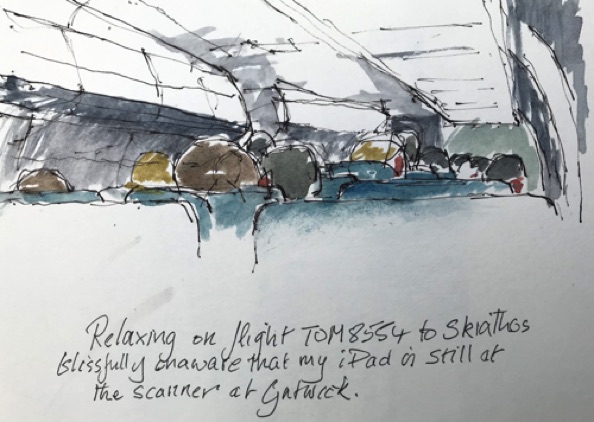 Relaxing on flight TOM8554 to Skiathos
blissfully unaware that my iPad is still at
the scanner at Gatwick.